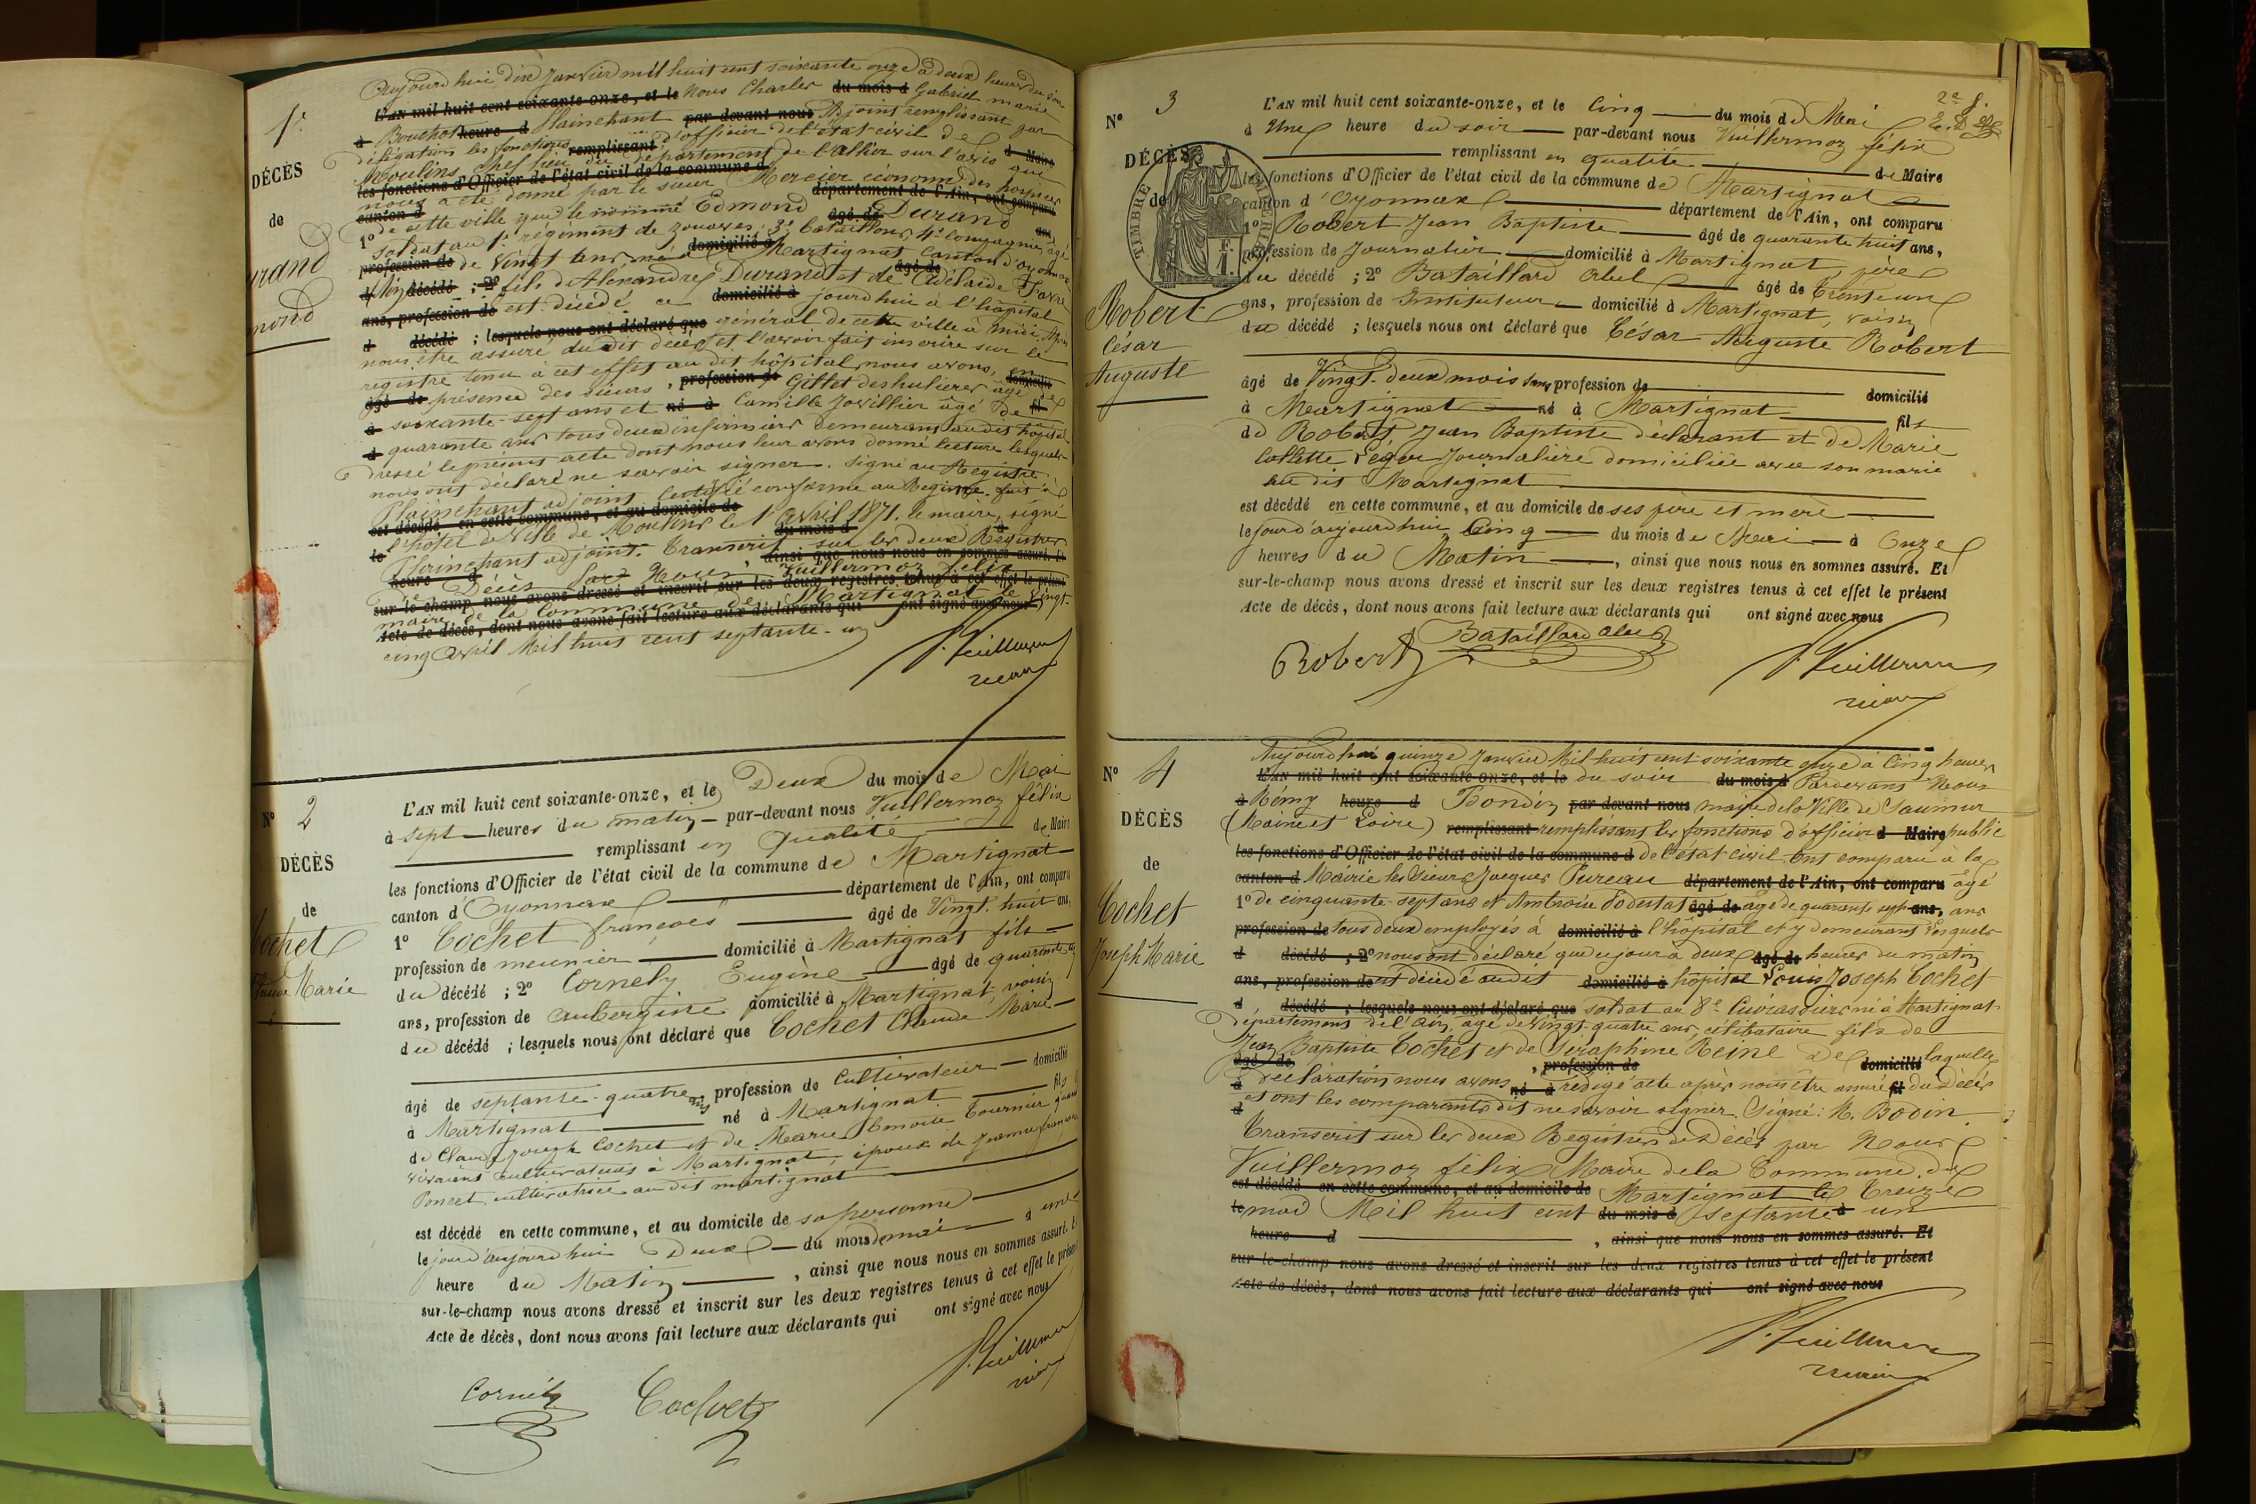 1r
DÉCÈS
de
Aujourd'hui dix Janvier mil huit cent soixante onze à deux heures du soir
L'AN mil huit cent soixante-onze, et le Nous Charles du mois d Gabriel marie
à Bouchot heure d Plainchant par devant nous Adjoint remplissant par
délégation les fonctions remplissant d'officier de l'état civil de d Maire
Moulins chef lieu du département de l'Allier sur l'avis que
les fonctions d'Officier de l'état civil de la commune d
nous a été donné par le sieur Mercier économe des hospices
canton d département de l'Ain, ont comparu
de cette ville que le nommé Edmond Durand
1° âgé de ans,
soldat au 1r régiment de zouaves, 3e bataillon, 4e compagnie, âgé
profession de de vingt ans né à domicilié à Martignat canton d'Oyonnax
décédé ; 2° fils d'Alexandre Durand et de âgé de Adélaïde Favre
ans, profession de est décédé ce domicilié à jourd'hui à l'hôpital
d décédé ; lesquels nous ont déclaré que général de cette ville à midi. Après
nous être assuré du dit décès et l'avoir fait inscrire sur le
registre tenu à cet effet au dit hôpital nous avons, en
âgé de présence des sieurs, profession de Gillet âgé de domicilié
à soixante-sept ans et né à Camille âgé de fil
d quarante ans tous deux infirmiers demeurant au dit hôpital
dressé le présent acte dont nous leur avons donné lecture lesquels
nous ont déclaré ne savoir signer. Signé au Registre.
Plainchant adjoint certifié conforme au Registre fait à
est décédé en cette commune, et au domicile de
le l'hôtel de Ville de Moulins le 1r avril 1871. le maire, signé
du mois d
Plainchant adjoint. Transcrit sur les deux Registres
heure d , ainsi que nous nous en sommes assuré. Et
de Décès par Nous Vuillermoz félix
sur-le-champ nous avons dressé et inscrit sur les deux registres tenus à cet effet le présent
maire de la commune de Martignat le vingt-
Acte de décès, dont nous avons fait lecture aux déclarants qui ont signé avec nous
cinq avril Mil huit cent septante-un
f. Vuillermoz
maire
N° 2
DÉCÈS
de
Cochet
Claude Marie
L'AN mil huit cent soixante-onze, et le Deux du mois de Mai
à sept heures du matin par-devant nous Vuillermoz félix
remplissant en qualité de Maire
les fonctions d'Officier de l'état civil de la commune de Martignat
canton d'Oyonnax département de l'Ain, ont comparu
1° Cochet françois âgé de Vingt-huit ans,
profession de meunier domicilié à Martignat fils
du décédé ; 2° Cornély Eugène âgé de quarante
ans, profession de aubergiste domicilié à Martignat, voisin
du décédé ; lesquels nous ont déclaré que Cochet Claude Marie
âgé de septante-quatre ans profession de Cultivateur domicilié
à Martignat né à Martignat fils
de Claude Joseph Cochet et de Marie Benoite Tournier
vivaient cultivateurs à Martignat, époux de
Poncet cultivatrice au dit martignat
est décédé en cette commune, et au domicile de sa personne
le jour d'aujourd'hui Deux du mois de mai à une
heure du Matin , ainsi que nous nous en sommes assuré. Et
sur-le-champ nous avons dressé et inscrit sur les deux registres tenus à cet effet le présent
Acte de décès, dont nous avons fait lecture aux déclarants qui ont signé avec nous
f. Vuillermoz
maire
Cornély Cochet
N° 3
DÉCÈS
de
Robert
César
Auguste
TIMBRE
2e f.
L'AN mil huit cent soixante-onze, et le Cinq du mois de Mai
à Une heure du soir par-devant nous Vuillermoz félix
remplissant en qualité de Maire
les fonctions d'Officier de l'état civil de la commune de Martignat
canton d'Oyonnax département de l'Ain, ont comparu
1° Robert Jean Baptiste âgé de quarante huit ans,
profession de Journalier domicilié à Martignat, père
du décédé ; 2° Bataillard Abel âgé de Trente un
ans, profession de Instituteur domicilié à Martignat, voisin
du décédé ; lesquels nous ont déclaré que César Auguste Robert
âgé de Vingt-deux mois sans profession de domicilié
à Martignat né à Martignat fils
de Robert Jean Baptiste déclarant et de Marie
Collette Léger Journalière domiciliée avec son marie
au dit Martignat
est décédé en cette commune, et au domicile de ses père et mère
le jour d'aujourd'hui Cinq du mois de Mai à Onze
heures du Matin , ainsi que nous nous en sommes assuré. Et
sur-le-champ nous avons dressé et inscrit sur les deux registres tenus à cet effet le présent
Acte de décès, dont nous avons fait lecture aux déclarants qui ont signé avec nous
Robert Bataillard Abel
f. Vuillermoz
maire
N° 4
DÉCÈS
de
Cochet
Joseph Marie
Aujourd'hui quinze Janvier Mil huit cent soixante onze à Cinq heures
L'AN mil huit cent soixante-onze, et le du soir du mois d Pardevant Nous
à Rémy heure d Bodin par devant nous maire de la Ville de Saumur
(Maine et Loire) remplissant remplissant les fonctions d'officier d Maire public
les fonctions d'Officier de l'état civil de la commune d de l'état civil ont comparu à la
canton d Mairie les Sieurs Jacques Pureau département de l'Ain, ont comparu âgé
1° de cinquante-sept ans et Ambroise Podestat âgé de âgé de quarante sept ans, ans
profession de tous deux employés à domicilié à l'hôpital et y demeurant lesquels
d décédé ; 2° nous ont déclaré que ce jour à deux âgé de heures du matin
ans, profession de est décédé au dit domicilié à hôpital Louis Joseph Cochet
d décédé ; lesquels nous ont déclaré que soldat au 8e Cuirassiers né à Martignat
département de l'ain, âgé de vingt-quatre ans, célibataire fils de
Jean Baptiste Cochet et de Séraphine Reine De laquelle
âgé de , profession de domicilié
à déclaration nous avons né à rédigé acte après nous être assuré fil du Décès
d et ont les comparants dit ne savoir signer. Signé : R. Bodin.
Transcrit sur les deux Registres de Décès par Nous
Vuillermoz félix Maire de la Commune de
est décédé en cette commune, et au domicile de Martignat le Treize
le mai Mil huit cent du mois d septante à un
heure d , ainsi que nous nous en sommes assuré. Et
sur-le-champ nous avons dressé et inscrit sur les deux registres tenus à cet effet le présent
Acte de décès, dont nous avons fait lecture aux déclarants qui ont signé avec nous
f. Vuillermoz
maire